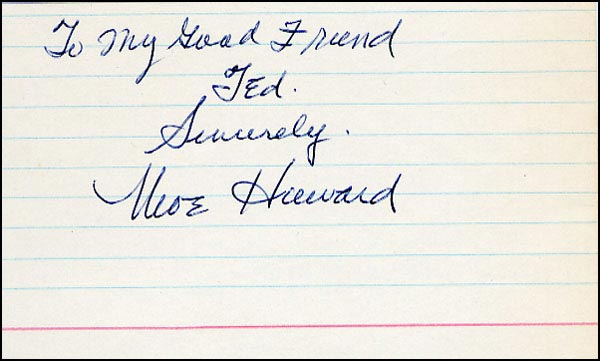 To My Good Friend
Ted.
Sincerely.
Moe Howard